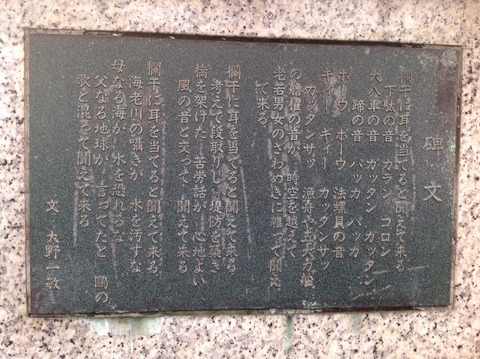 碑文
欄干に耳を当てると聞えて来る
下駄の音 カラン コロン
大八車の音 ガッタン ガッタン
蹄の音 パッカ パッカ
ボーウ ボーウ 法螺貝の音
ギィー ギィー カッタンサッ
カッタンサッ 漁舟や五大力船
の艪櫂の音が 時空を超えて
老若男女のざわめきに雑って聞え
て来る
欄干に耳を当てると聞えて来る
考えて段取りし 堤防を築き
橋を架けた 苦労話が 心地よい
風の音と交って 聞えて来る
欄干に耳を当てると聞えて来る
海老川の囁きが 水を汚すな
母なる海が 水を恐れるな
父なる地球が 言ってたと 鴎の
歌と混って聞えて来る
文 大野一敏